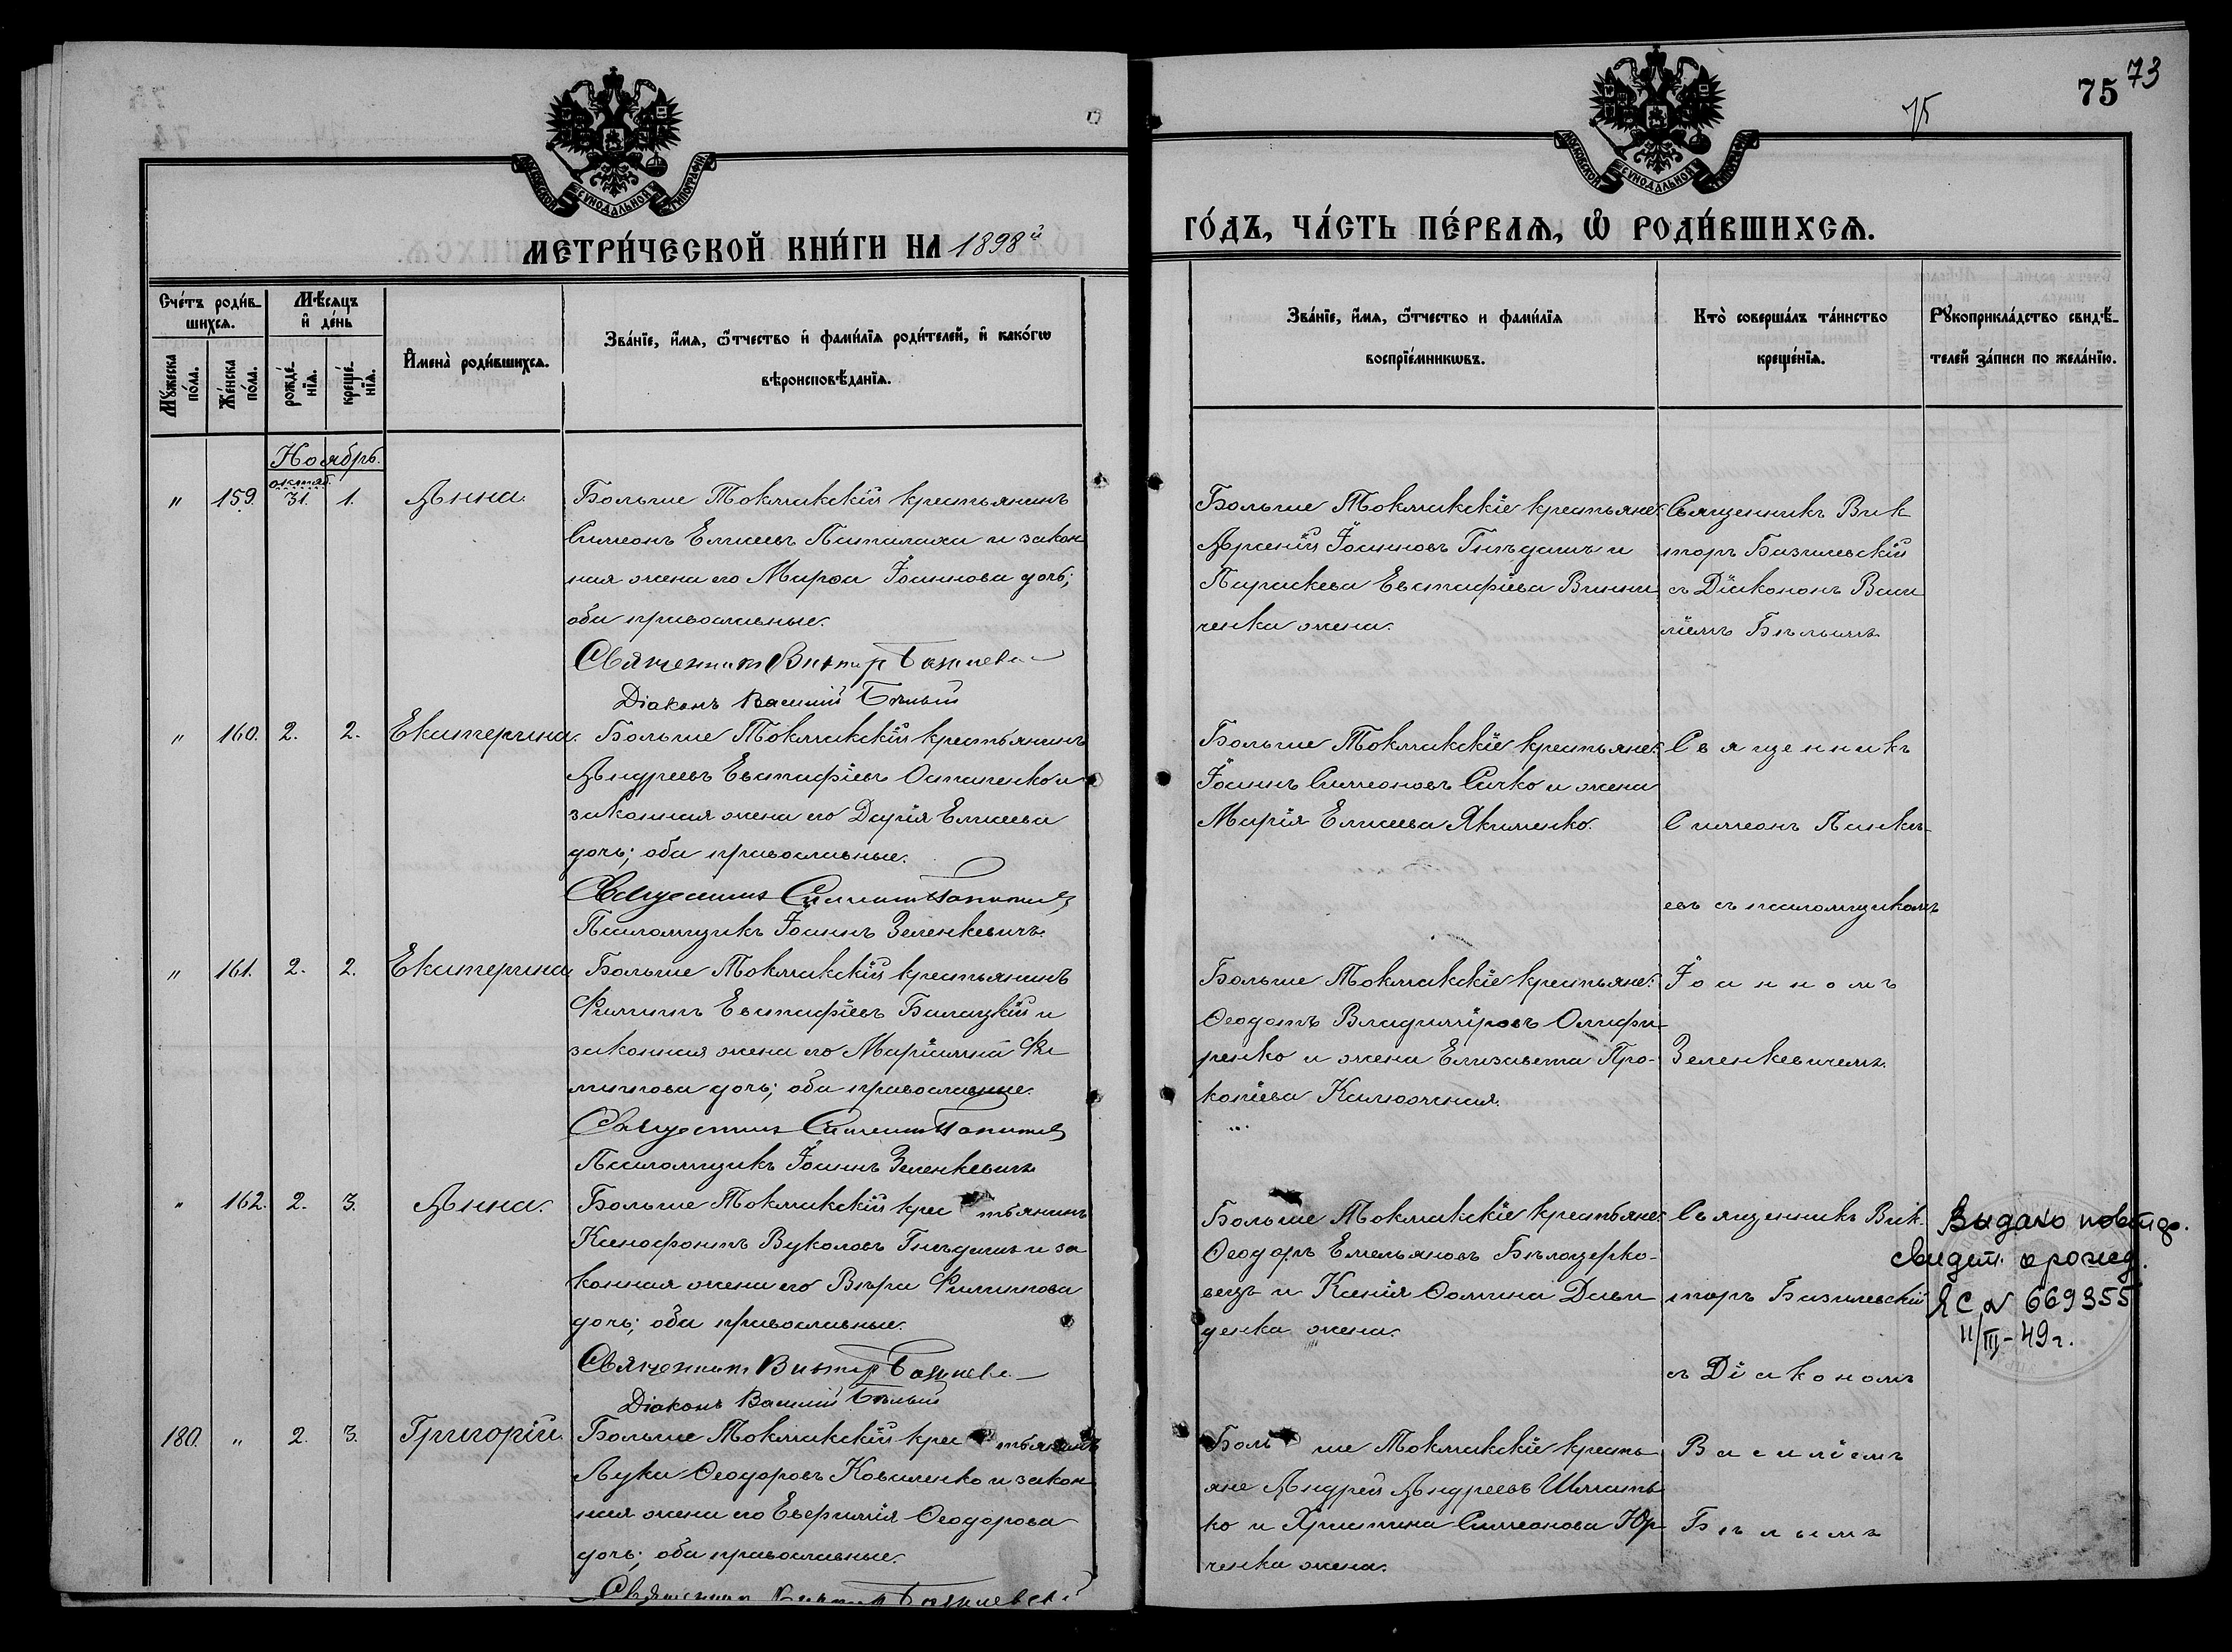 73
75
75
МОСКОВСКОЙ СѴНОДАЛЬНОЙ ТИПОГРАФІИ
МОСКОВСКОЙ СѴНОДАЛЬНОЙ ТИПОГРАФІИ
МЕТРИ́ЧЕСКОЙ КНИ́ГИ НА 1898й
ГО́ДЪ, ЧА́СТЬ ПЕ́РВАѦ, Ѽ РОДИ́ВШИХСѦ.
Сче́тъ роди́в-
шихсѧ.
Мꙋ́жеска по́ла.
Же́нска по́ла.
Мѣ́сяцъ
и҆ де́нь
рожде́-
нїѧ.
креще́-
нїѧ.
И҆мена̀ роди́вшихсѧ.
Зва́нїе, и҆́мѧ, ѻ҆́тчество и҆ фами́лїѧ роди́телей, и҆ како́гѡ
вѣроисповѣ́данїѧ.
Зва́нїе, и҆́мѧ, ѻ҆́тчество и фами́лїѧ
воспрїе́мникѡвъ.
Кто̀ соверша́лъ та́инство
креще́нїѧ.
Рꙋкоприкла́дство свидѣ́-
телей за́писи по жела́нїю.
Ноябрь.
октяб.
" 159. 31. 1. Анна.
Больше Токмакскій крестьянинъ
Симеонъ Елисеевъ Паталаха и закон
ная жена его Марѳа Іоаннова дочь;
оба православные.
Священникъ Викторъ Базилев
Діаконъ Василій Бѣлый
Больше Токмакскіе крестьяне:
Арсеній Іоанновъ Гнѣдашъ и
Параскева Евстафіева Винни
ченка жена.
Священникъ Вик
торъ Базилевскій
съ Діакономъ Васи
ліемъ Бѣлымъ
" 160. 2. 2. Екатерина.
Больше Токмакскій крестьянинъ
Андреевъ Евстафіевъ Остапенко и
законная жена его Дарія Елисеева
дочь; оба православные.
Священникъ Симеонъ
Псаломщикъ Іоаннъ Зеленкевичъ.
Больше Токмакскіе крестьяне:
Іоаннъ Симеоновъ Сичко и жена
Марія Елисеева Якименко.
Священникъ
Симеонъ
евъ съ псаломщикомъ
" 161. 2. 2. Екатерина
Больше Токмакскій крестьянинъ
Филиппъ Евстафіевъ Балацкій и
законная жена его Маріамна Фи
липпова дочь; оба православные.
Священникъ Симеонъ
Псаломщикъ Іоаннъ Зеленкевичъ
Больше Токмакскіе крестьяне:
Ѳеодотъ Владиміровъ Олифи-
ренко и жена Елизавета Про-
копіева Калюжная.
Іоанномъ
Зеленкевичемъ.
" 162. 2. 3. Анна.
Больше Токмакскій крестьянинъ
Ксенофонтъ Вуколовъ Гнѣдашъ и за
конная жена его Вѣра Филиппова
дочь; оба православные.
Священникъ Викторъ Базилев
Діаконъ Василій Бѣлый
Больше Токмакскіе крестьяне:
Ѳеодоръ Емельяновъ Бѣлоцерко-
вецъ и Ксенія Ѳомина Дави
денка жена.
Священникъ Вик-
торъ Базилевскій
съ Діакономъ
Видано повторо.
свидет. о рожд.
ЯС № 669355
11/III-49г.
180. " 2. 3. Григорій.
Больше Токмакскій крестьянинъ
Лука Ѳеодоровъ Коваленко и закон
ная жена его Евфимія Ѳеодорова
дочь; оба православные.
Священникъ Викторъ Базилевскі
Больше Токмакскіе кресть
яне Андрей Андреевъ Шмать
ко и Христина Симеонова Юр
ченка жена.
Василіемъ
Бѣлымъ